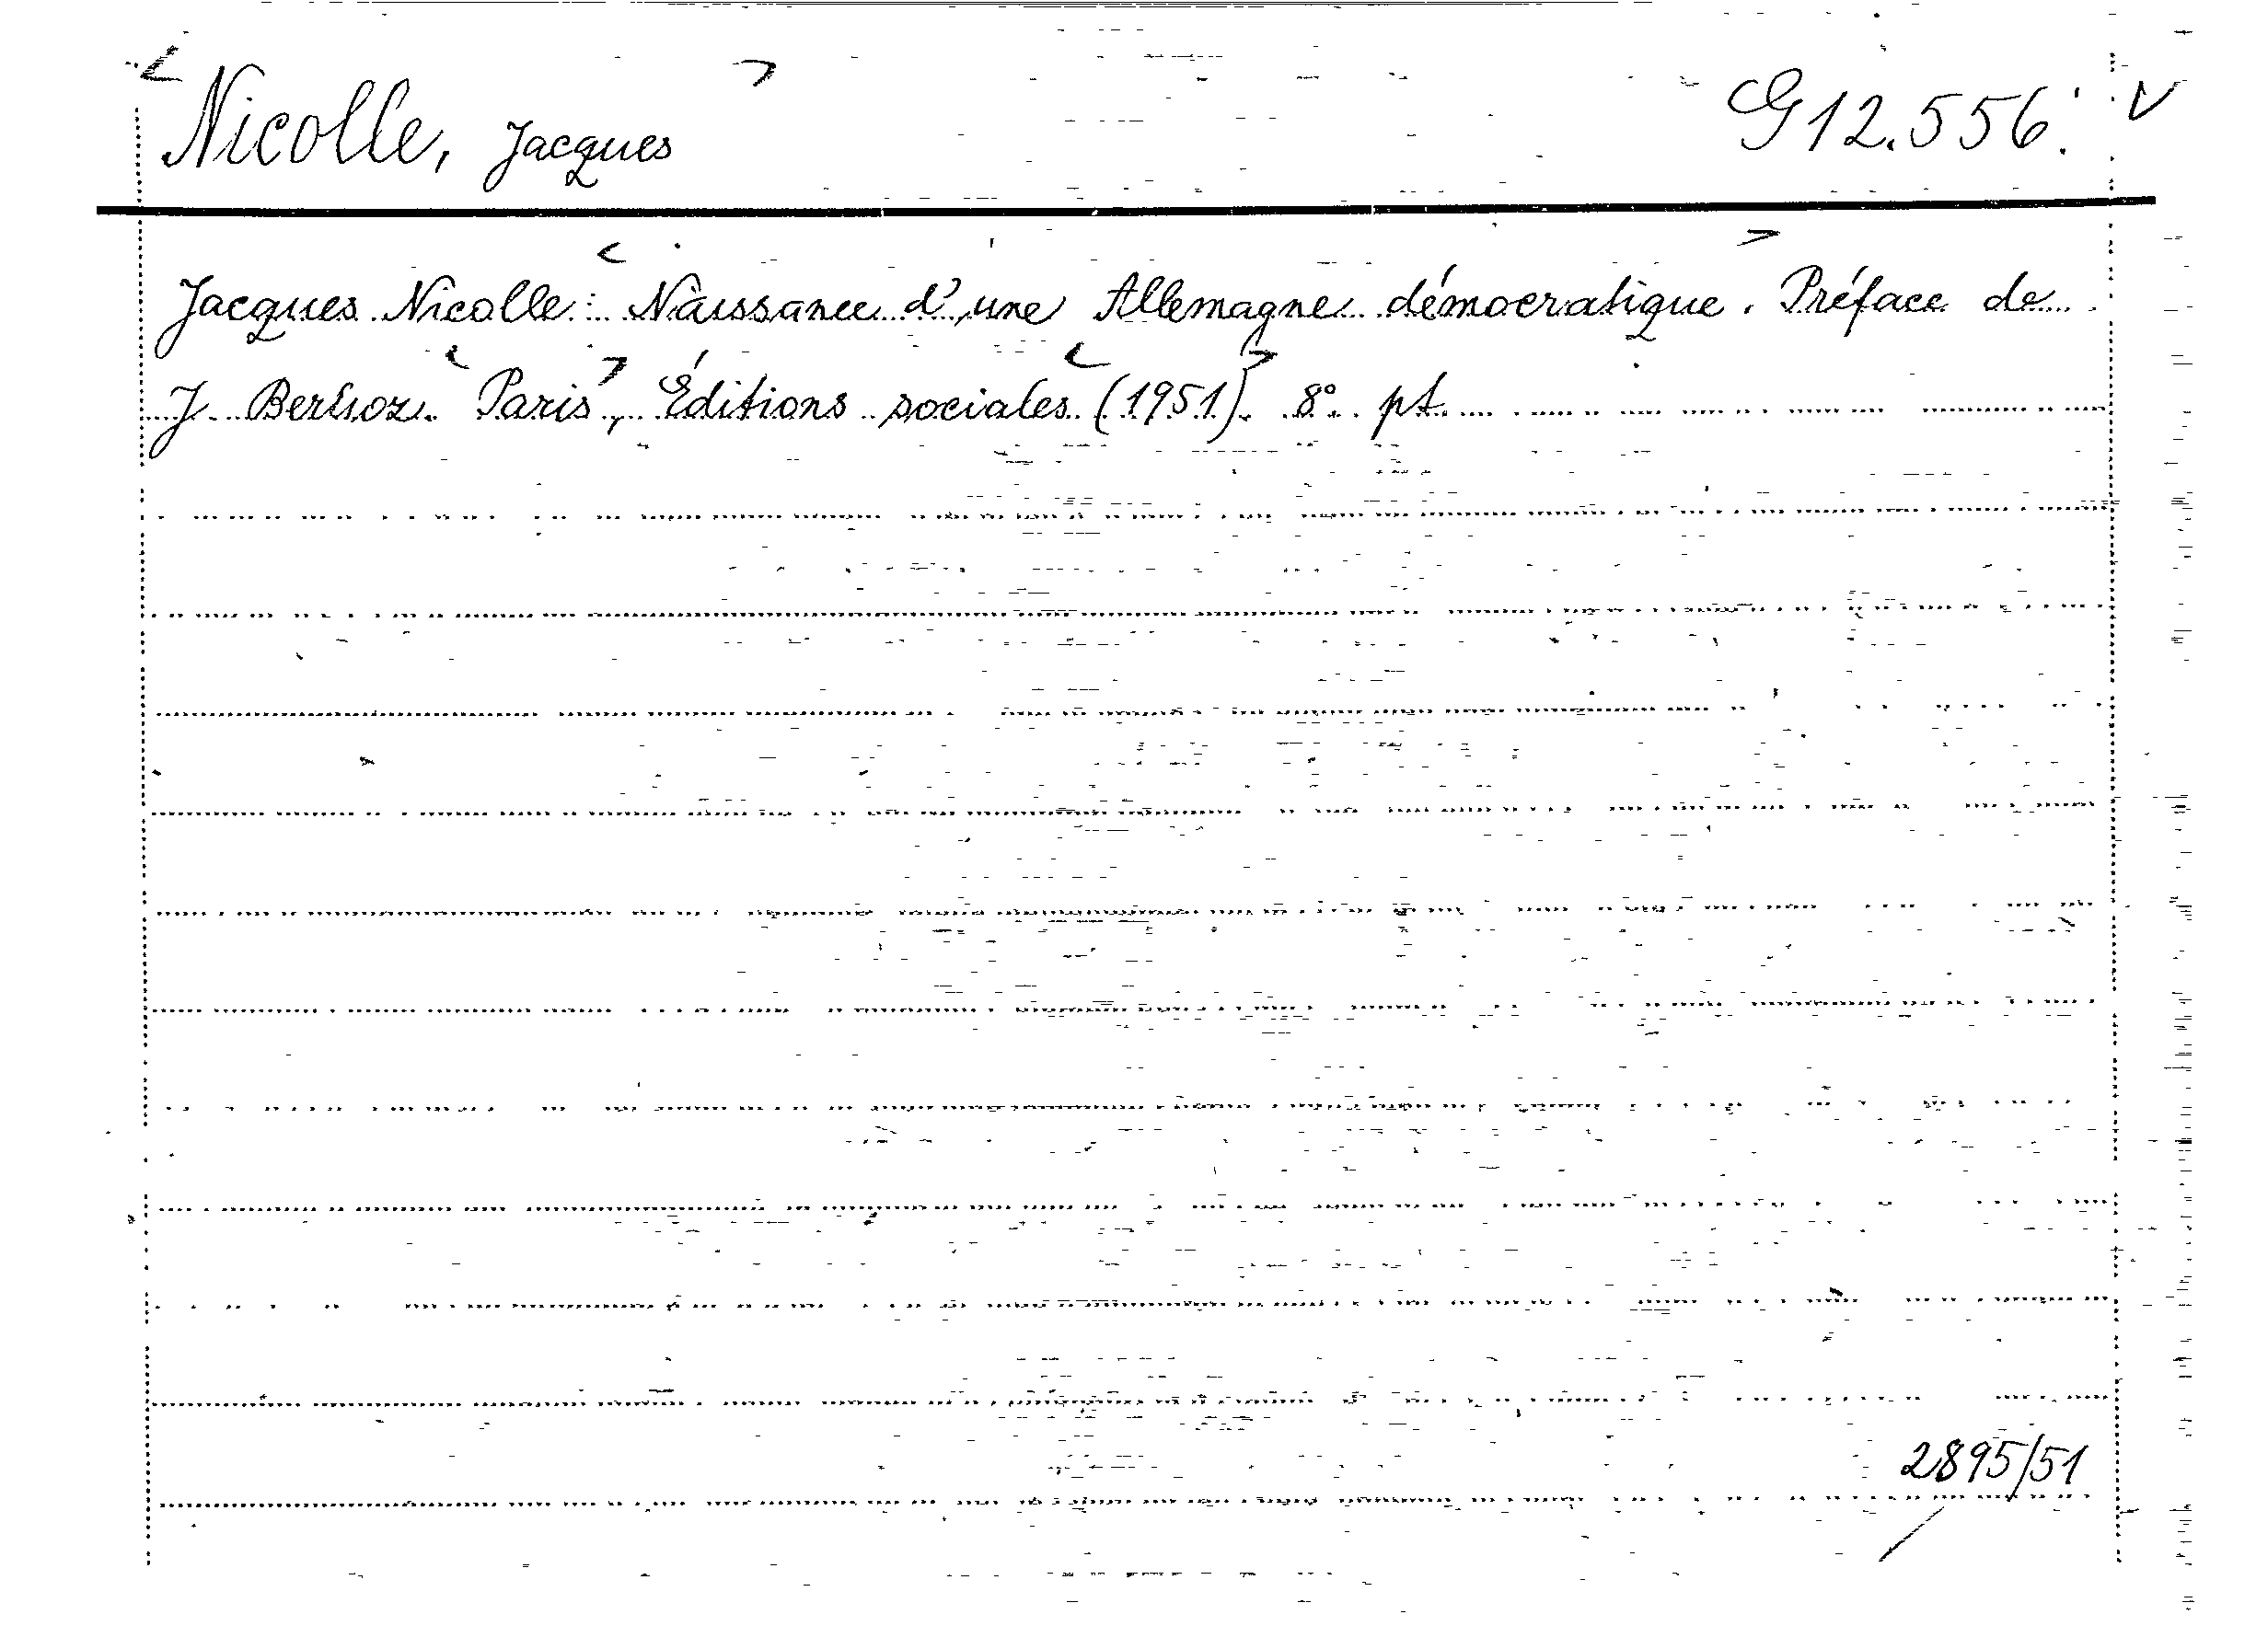 Nicolle, Jacques G 12.556. V
Jacques Nicolle: Naissance d'une Allemagne démocratique. Préface de
J. Berlioz. Paris, Éditions sociales (1951). 8°. pt.
2895/51